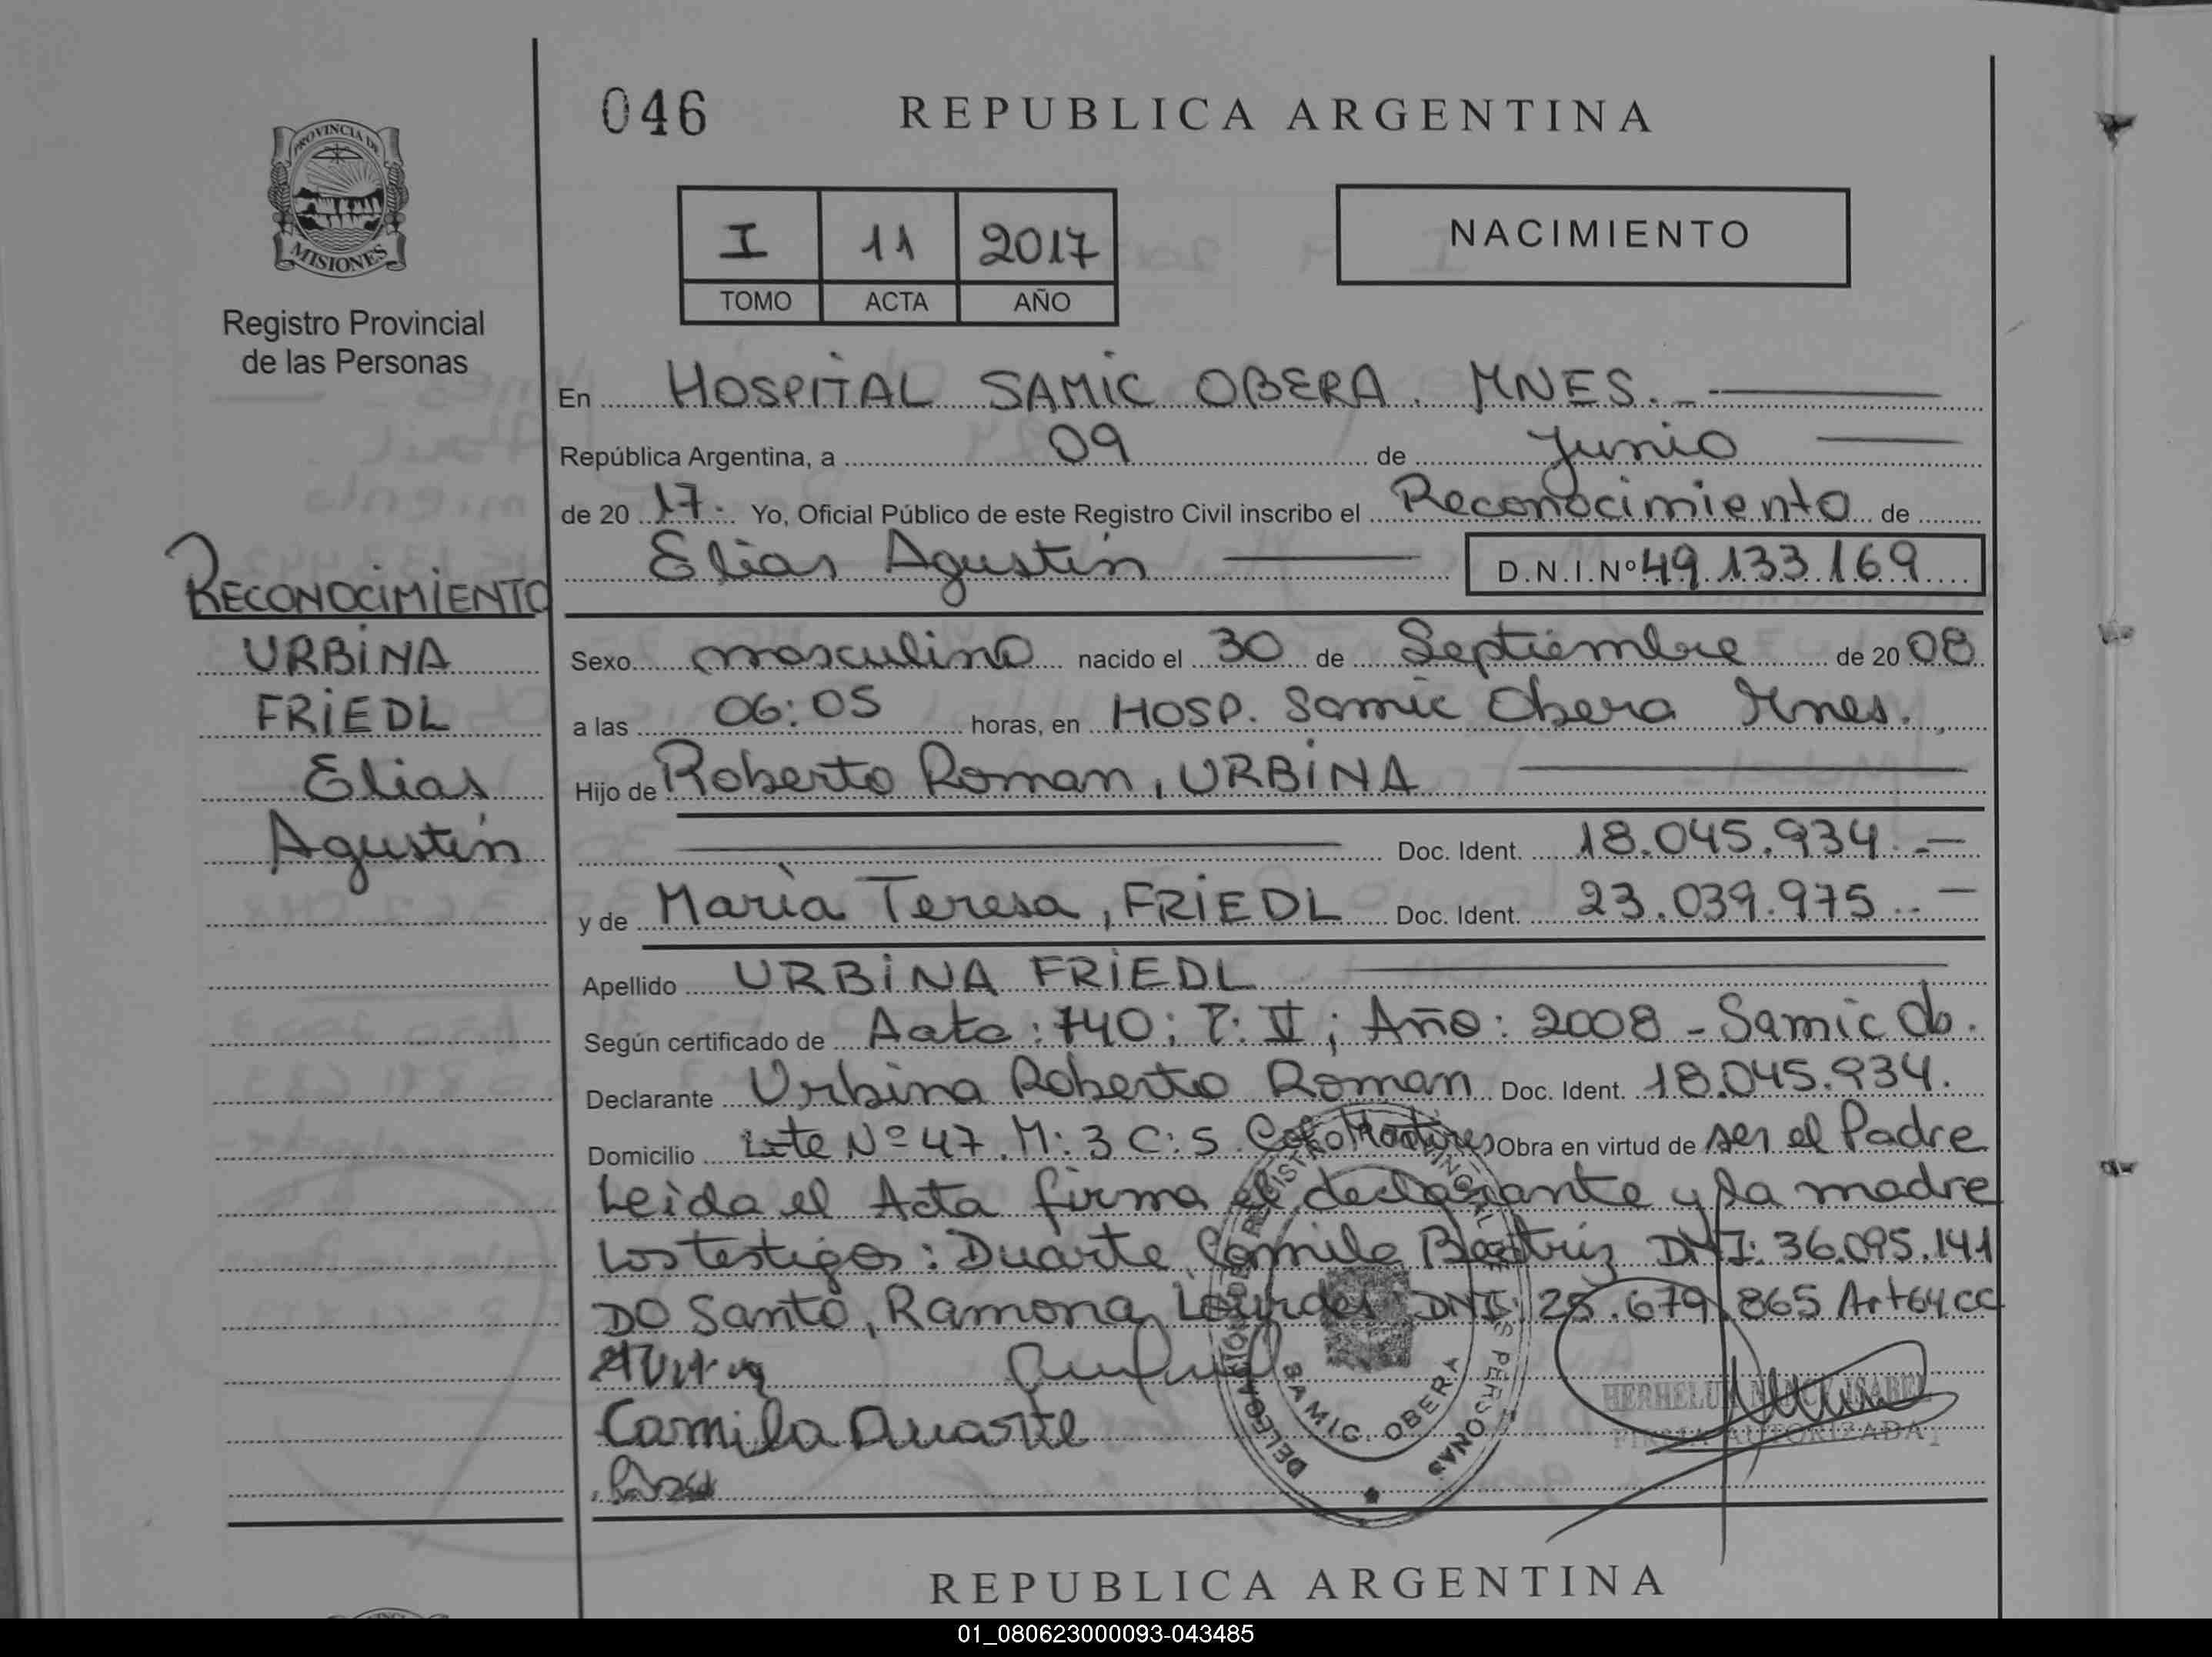 046
REPUBLICA ARGENTINA
PROVINCIA DE
MISIONES
Registro Provincial
de las Personas
I 11 2017
TOMO ACTA AÑO
NACIMIENTO
RECONOCIMIENTO
URBINA
FRIEDL
Elias
Agustín
En HOSPITAL SAMIC OBERA. MNES.
República Argentina, a 09 de Junio
de 20 17. Yo, Oficial Público de este Registro Civil inscribo el Reconocimiento de
Elias Agustín D.N.I.Nº 49.133.169
Sexo masculino nacido el 30 de Septiembre de 20 08
a las 06:05 horas, en HOSP. Samic Obera Mnes.
Hijo de Roberto Roman, URBINA
Doc. Ident. 18.045.934.-
y de Marìa Teresa, FRIEDL Doc. Ident. 23.039.975.-
Apellido URBINA FRIEDL
Según certificado de Acta: 740; T: II; Año: 2008 - Samic Ob.
Declarante Urbina Roberto Roman Doc. Ident. 18.045.934.
Domicilio Lote Nº 47. M: 3 C: 5. Obra en virtud de ser el Padre
Leida el Acta firma el declarante y la madre
Los testigos: Duarte, Camila Beatriz DNI: 36.095.141
DO Santo, Ramona Lourdes DNI: 25.679.865 Art 64 CC
Camila Duarte
SAMIC OBERA
FIRMA AUTORIZADA
REPUBLICA ARGENTINA
01_080623000093-043485